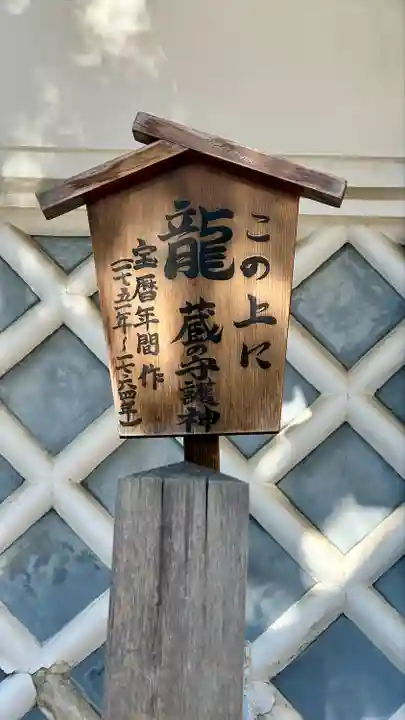 この上に
龍 蔵の守護神
宝暦年間作
(一七五一年〜一七六四年)